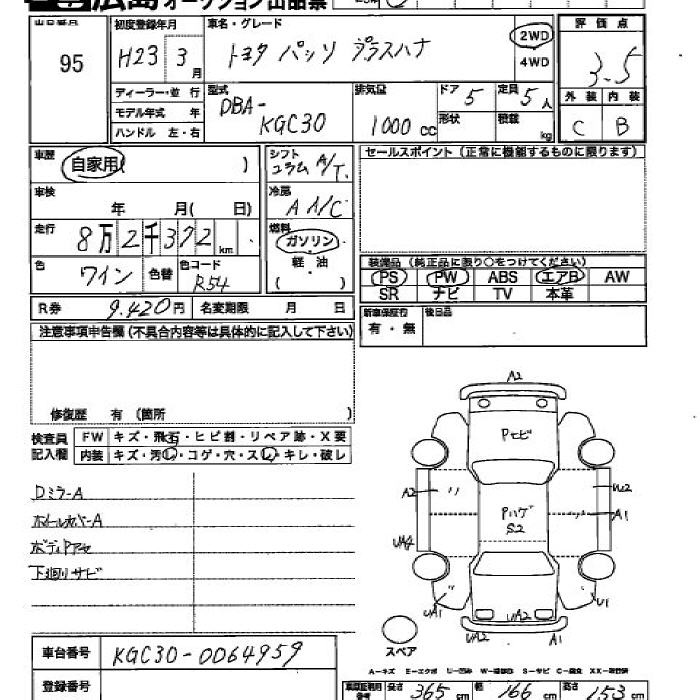 広島 オークション出品票
出品番号 初度登録年月 車名・グレード 評価点
95 H23 3月 トヨタ パッソ プラスハナ 2WD 4WD 3.5
ディーラー・並行 型式 排気量 ドア 定員 外装 内装
モデル年式 年 DBA-KGC30 1000 cc 5 5人 C B
ハンドル 左・右 形状 積載 kg
車歴 自家用( ) シフト コラム A/T セールスポイント (正常に機能するものに限ります)
車検 年 月( 日) 冷房 A A/C
走行 8万2千372km 燃料 ガソリン
軽・油
( )
色 ワイン 色替 色コード R54
装備品 (純正品に限り○をつけてください)
PS PW ABS エアB AW
SR ナビ TV 本革
R券 9.420円 名変期限 月 日
新車保証行 有・無 後日品
注意事項申告欄 (不具合内容等は具体的に記入して下さい)
修復歴 有 (箇所 )
検査員記入欄 FW キズ・飛石・ヒビ割・リペア跡・X要
内装 キズ・汚レ・コゲ・穴・スレ・キレ・破レ
Dミラ-A
ホイールカバ-A
ボディPアセ
下廻りサビ
A2
Pトビ
A2
W2
Pハゲ
S2
A1
UA2
UA1
U1
UA2
UA2
A1
スペア
A-キズ E-エクボ U-凹み S-サビ
車台番号 KGC30-0064959
登録番号
長さ 365 cm 幅 166 cm 高さ 153 cm